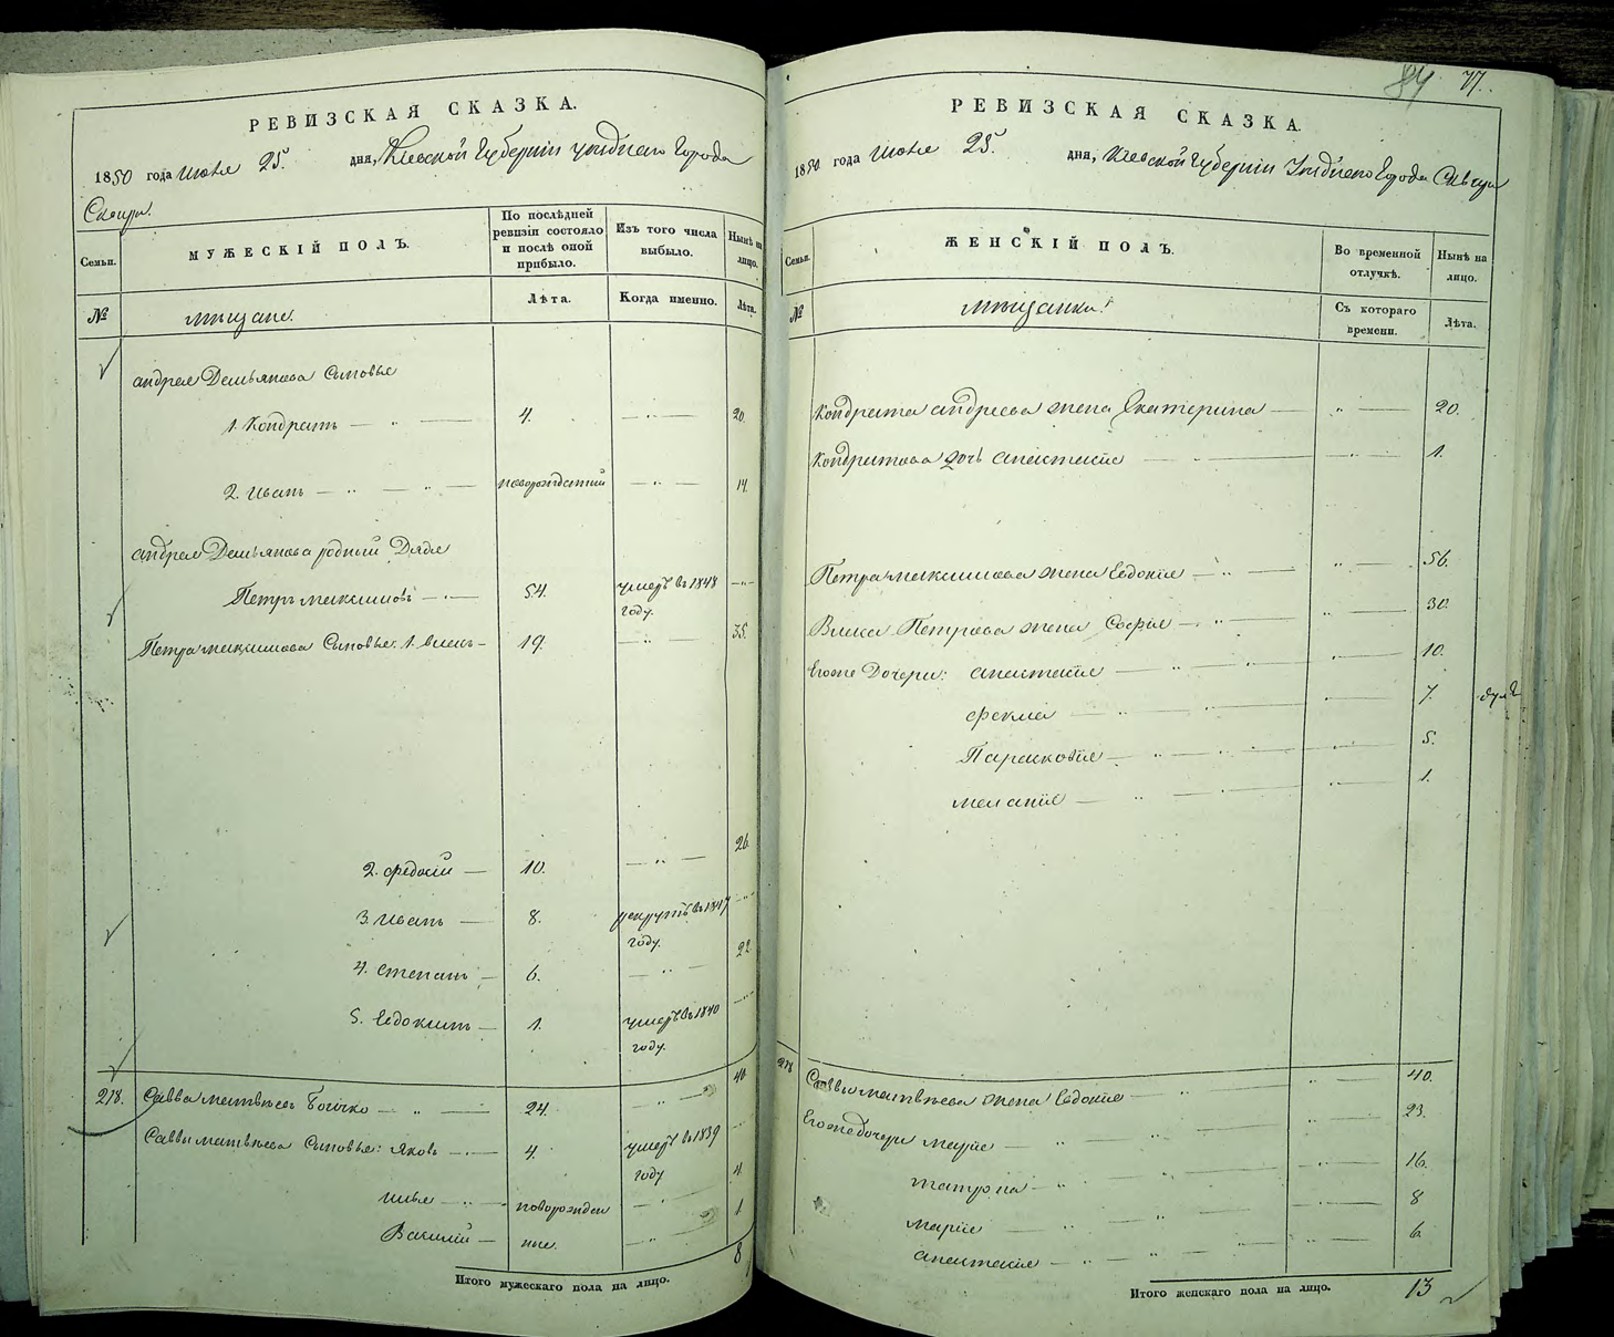 РЕВИЗСКАЯ СКАЗКА.
1850 года июля 25. дня, Киевской Губернии уезднаго Города
Сквиры.
Семьи.
МУЖЕСКІЙ ПОЛЪ.
По послѣдней ревизіи состояло и послѣ оной прибыло.
Изъ того числа выбыло.
Нынѣ на лицо.
№
мѣщане.
Лѣта.
Когда именно.
Лѣта.
андрея Демьянова Сыновья
1. Кондратъ — " — 4. — " — 20.
2. Иванъ — " — " — новорожденный — " — 14.
андрея Демьянова родный Дядя
Петръ максимовъ — " — 54. умеръ въ 1848 — " —
году.
Петра максимова Сыновья: 1. — 19. — " — 35.
2. федосій — 10. — " — 26.
3. Иванъ — 8. рекрутъ въ 1847 — " —
году.
4. Степанъ — 6. — " — 22.
5. Евдокимъ — 1. умеръ въ 1840 — " —
году.
218. Савва матвѣевъ — " — 24. — " — 40.
Саввы матвѣева Сыновья: Яковъ — " — 4. умеръ въ 1839 — " —
году
илья — " — новорожден — " — 4.
Василій — ные. — " — 1
Итого мужескаго пола на лицо. 8
84 77.
РЕВИЗСКАЯ СКАЗКА.
1850 года июля 25. дня, Киевской Губерніи Уезднаго Города Сквиры
Семьи.
ЖЕНСКІЙ ПОЛЪ.
Во временной отлучкѣ.
Нынѣ на лицо.
№
мѣщанки.
Съ котораго времени.
Лѣта.
Кондрата андреева жена Екатерина — " — 20.
Кондратова дочь анастасія — " — " — 1.
Петра максимова жена Евдокія — " — " — 56.
Петрова жена Софія — " — " — 30.
Егоже Дочери: анастасія — " — " — 10.
фекла — " — " — 7.
Парасковія — " — " — 5.
меланія — " — " — 1.
218
Саввы матвѣева жена Евдокія — " — " — 40.
Егоже дочери марія — " — " — 23.
матрона — " — " — 16.
марія — " — " — 8
анастасія — " — " — 6.
Итого женскаго пола на лицо. 13